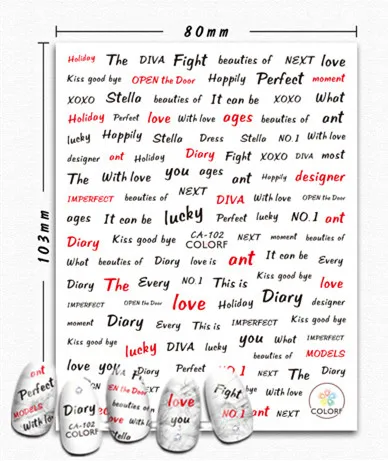 80mm
103mm
Holiday The DIVA Fight beauties of NEXT love
Kiss good bye OPEN the Door Happily Perfect moment
XOXO Stella beauties of It can be XOXO What
Holiday Perfect love With love ages beauties of ant
lucky Happily Stella Dress Stella NO.1 With love
designer ant Holiday Diary Fight XOXO DIVA most
The With love you ages ant Happily designer
IMPERFECT beauties of NEXT DIVA With love OPEN the Door
ages It can be lucky Perfect lucky NO.1 ant
Diary Kiss good bye CA-102 COLORF NEXT moment beauties of
What beauties of Diary love is ant It can be Every
Diary The Every NO.1 This is Kiss good bye love
IMPERFECT OPEN the Door love Holiday Diary designer
moment Diary Every This is IMPERFECT Kiss good bye
Kiss good bye lucky DIVA lucky you What IMPERFECT
beauties of MODELS
love you Diary NO.1 NEXT The Diary
Kiss good bye Every With love
NO.1 ant NEXT COLORF
ant
Perfect
MODELS
With lo
EN the Door
Diary
CA-102
COLORF
beauties
With lo
Stella
love
you
Fight